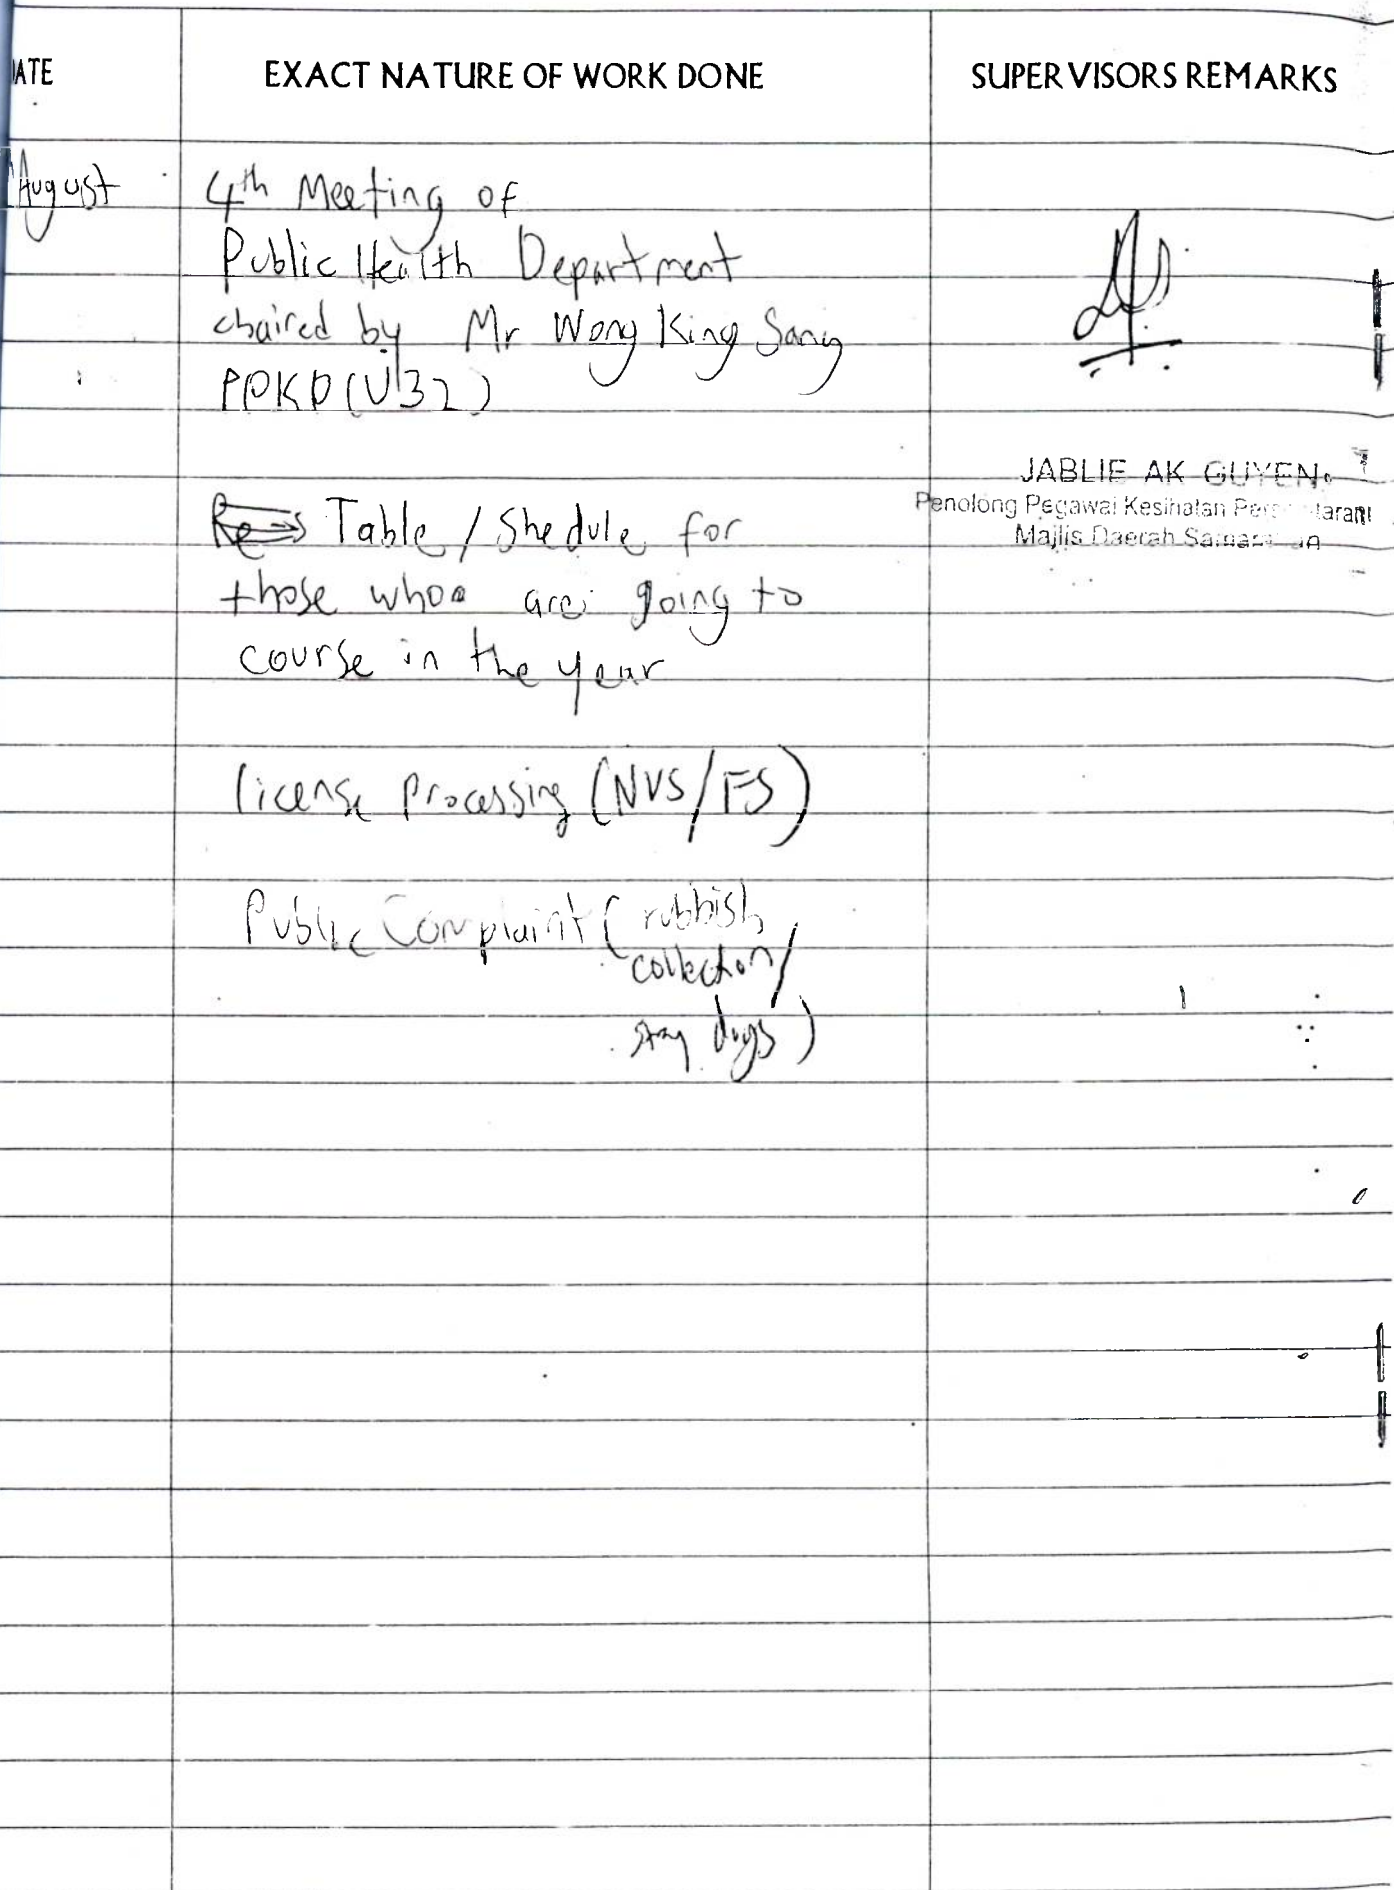 ATE EXACT NATURE OF WORK DONE SUPERVISORS REMARKS
August 4th Meeting of
Public Health Department
chaired by Mr Wong King Sang
PPKP(U32)
Table / Shedule for
those who are going to
course in the year
license processing (NVS/FS)
Public Complaint (rubbish
collection/
stray dogs)
JABLIE AK GUYEN
Penolong Pegawai Kesihatan
Majlis Daerah